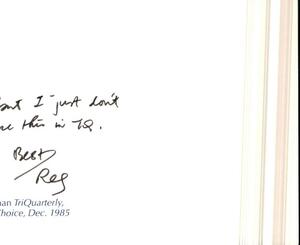 but I just don't
this in TQ.
Best
Reg
an TriQuarterly,
hoice, Dec. 1985